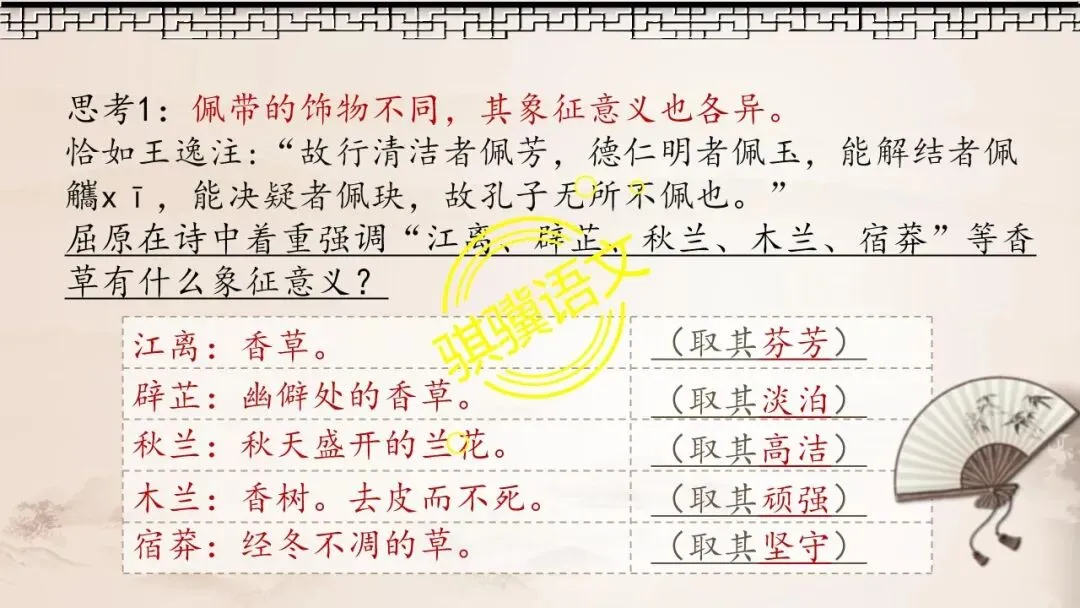 思考1：佩带的饰物不同，其象征意义也各异。
恰如王逸注：“故行清洁者佩芳，德仁明者佩玉，能解结者佩
觿xī，能决疑者佩玦，故孔子无所不佩也。”
屈原在诗中着重强调“江离、辟芷、秋兰、木兰、宿莽”等香
草有什么象征意义？
江离：香草。 （取其芬芳）
辟芷：幽僻处的香草。 （取其淡泊）
秋兰：秋天盛开的兰花。 （取其高洁）
木兰：香树。去皮而不死。 （取其顽强）
宿莽：经冬不凋的草。 （取其坚守）
骐骥语文